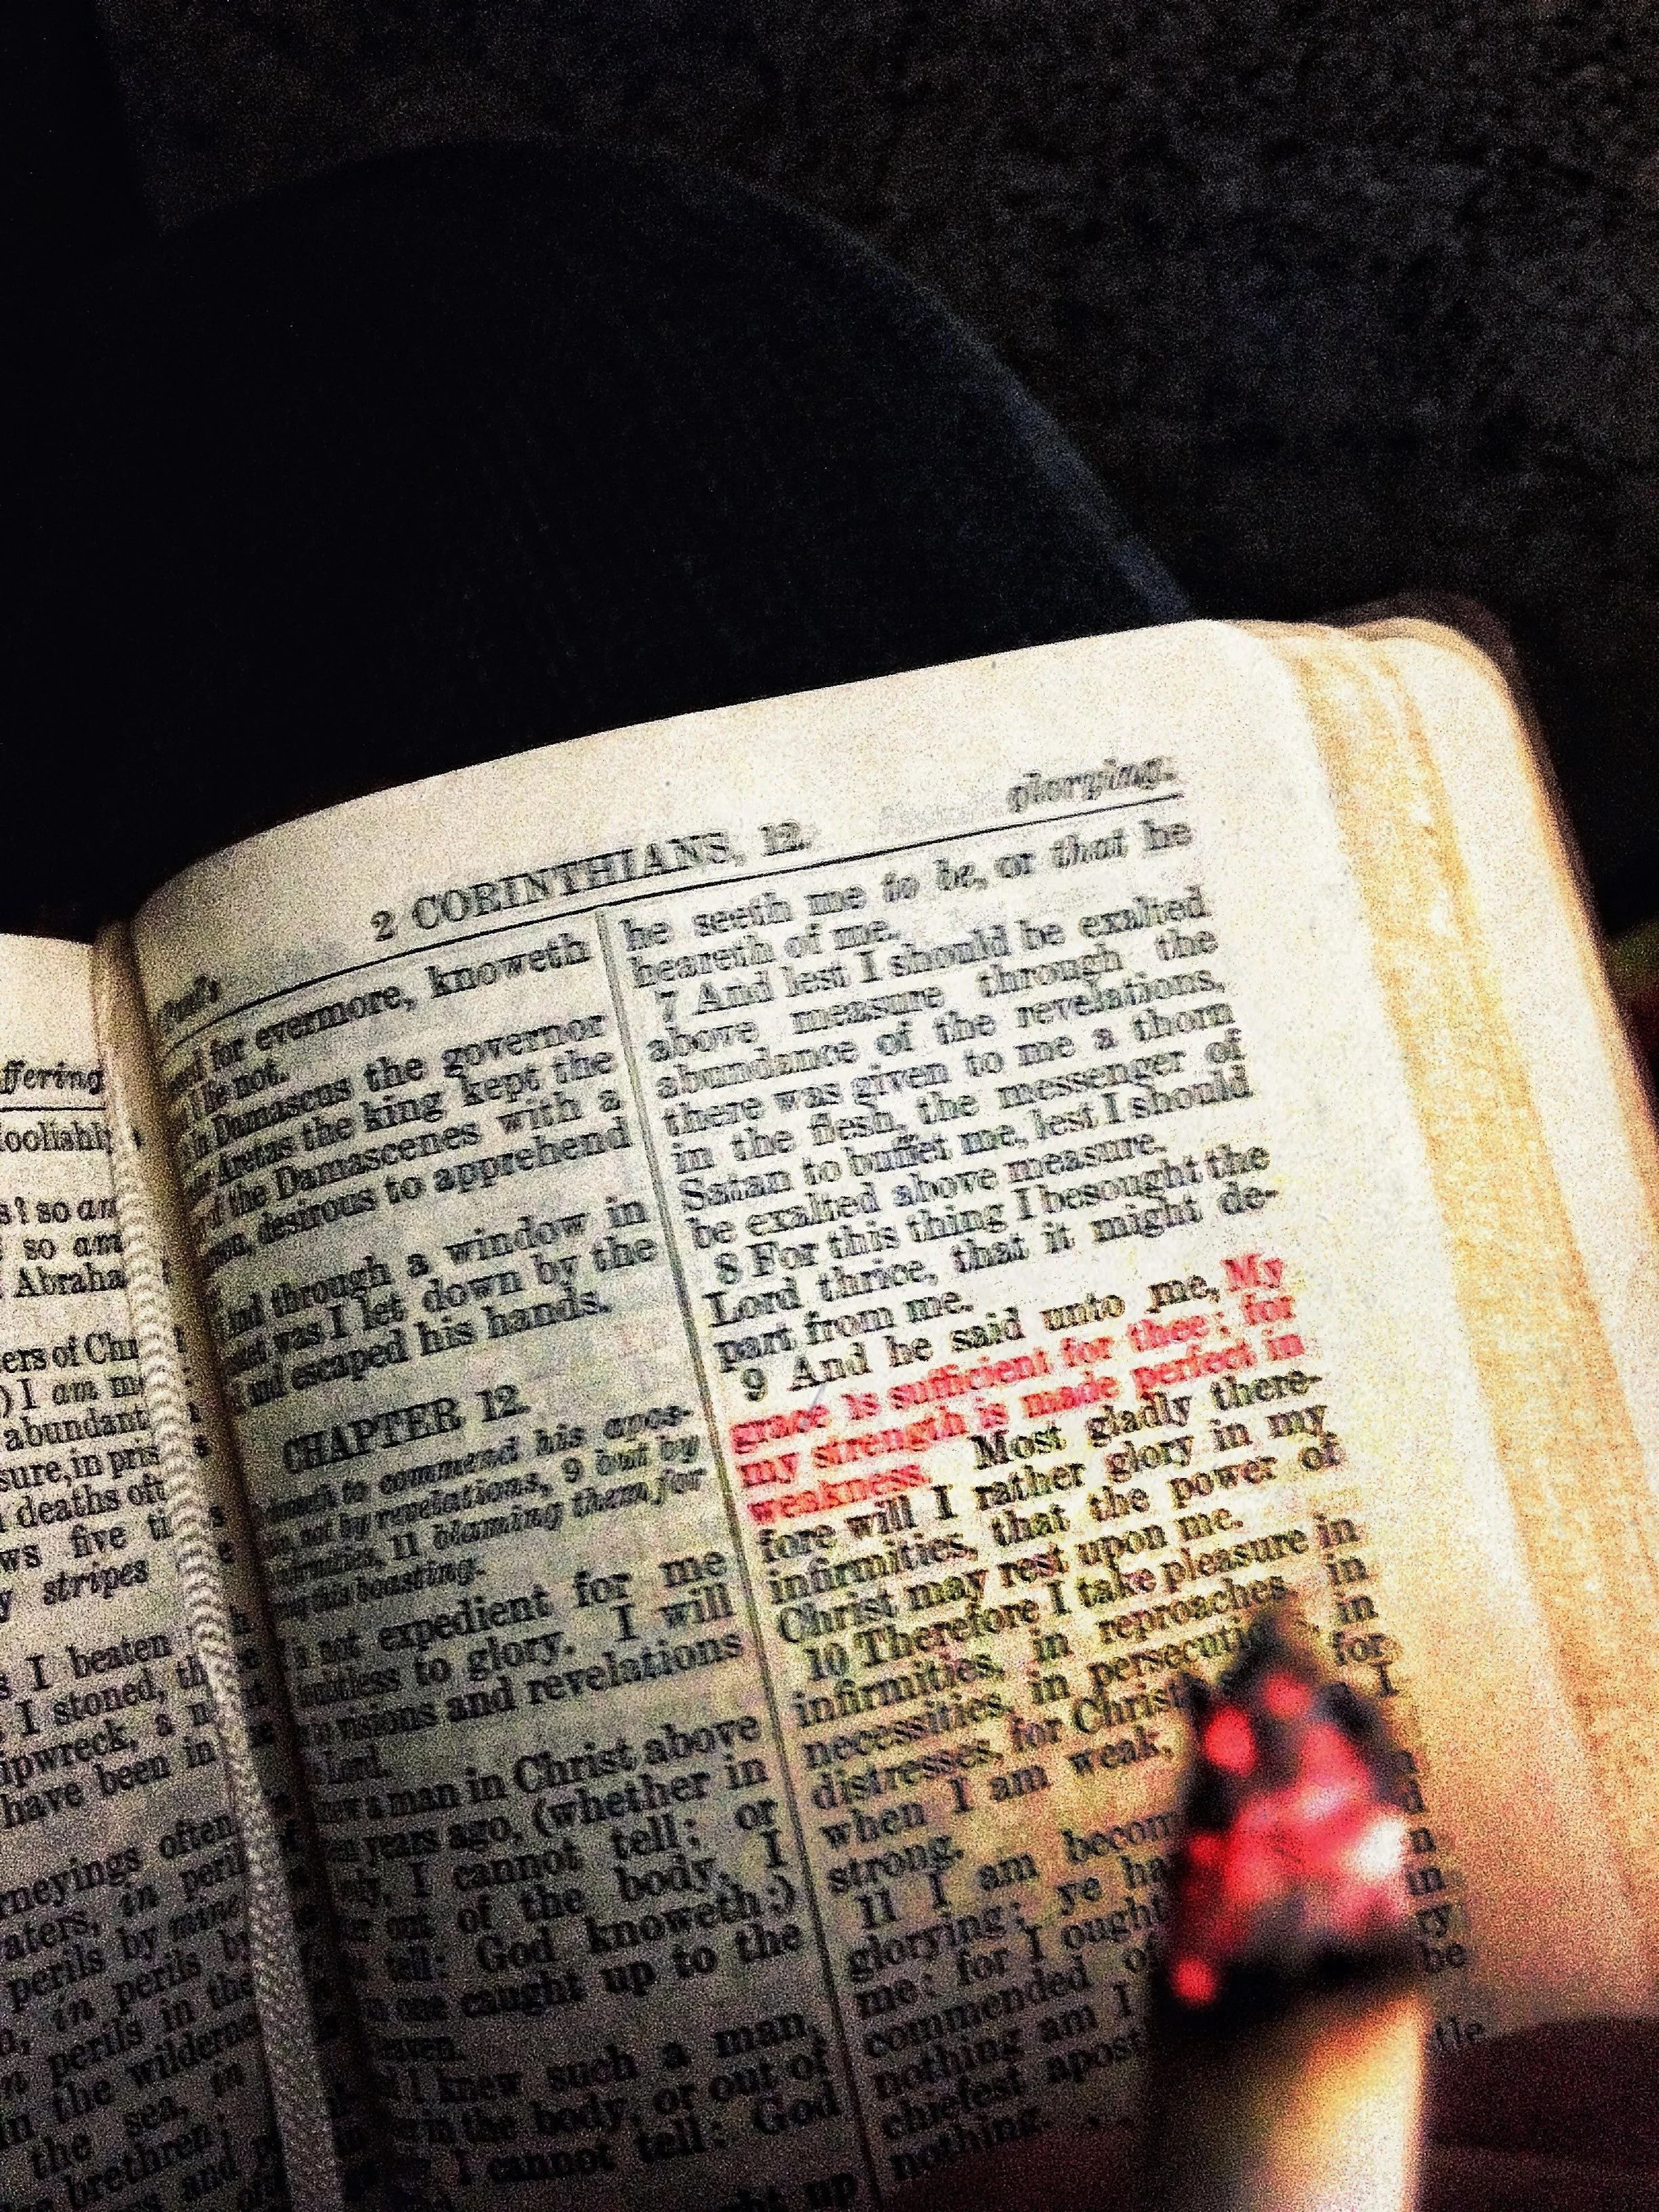 ffering
foolishl
s? so am
so am
Abraha
ers of Chr
) I am m
abundant
sure, in pris
deaths oft
ws five ti
y stripes
s I beaten
I stoned, th
ipwreck, a n
have been in
rneyings often
aters, in peril
perils by mine
in perils by
n perils in the
in the wilderne
the sea, in
brethren;
2 CORINTHIANS, 12.
glorying.
for evermore, knoweth
lie not.
Damascus the governor
Aretas the king kept the
of the Damascenes with a
desirous to apprehend
And through a window in
was I let down by the
and escaped his hands.
CHAPTER 12.
to commend his apos-
not by revelations, 9 but by
11 blaming them for
this boasting.
not expedient for me
to glory. I will
visions and revelations
Lord.
a man in Christ above
years ago, (whether in
I cannot tell; or
out of the body, I
tell: God knoweth;)
one caught up to the
heaven.
I knew such a man,
in the body, or out of
I cannot tell: God
ght up
he seeth me to be, or that he
heareth of me.
7 And lest I should be exalted
above measure through the
abundance of the revelations,
there was given to me a thorn
in the flesh, the messenger of
Satan to buffet me, lest I should
be exalted above measure.
8 For this thing I besought the
Lord thrice, that it might de-
part from me.
9 And he said unto me, My
grace is sufficient for thee: for
my strength is made perfect in
weakness. Most gladly there-
fore will I rather glory in my
infirmities, that the power of
Christ may rest upon me.
10 Therefore I take pleasure in
infirmities, in reproaches, in
necessities, in persecuti in
distresses, for Christ for
when I am weak, I
strong.
11 I am becom
glorying; ye ha
me: for I ought
commended of
nothing am I
chiefest apost tle
nothing.